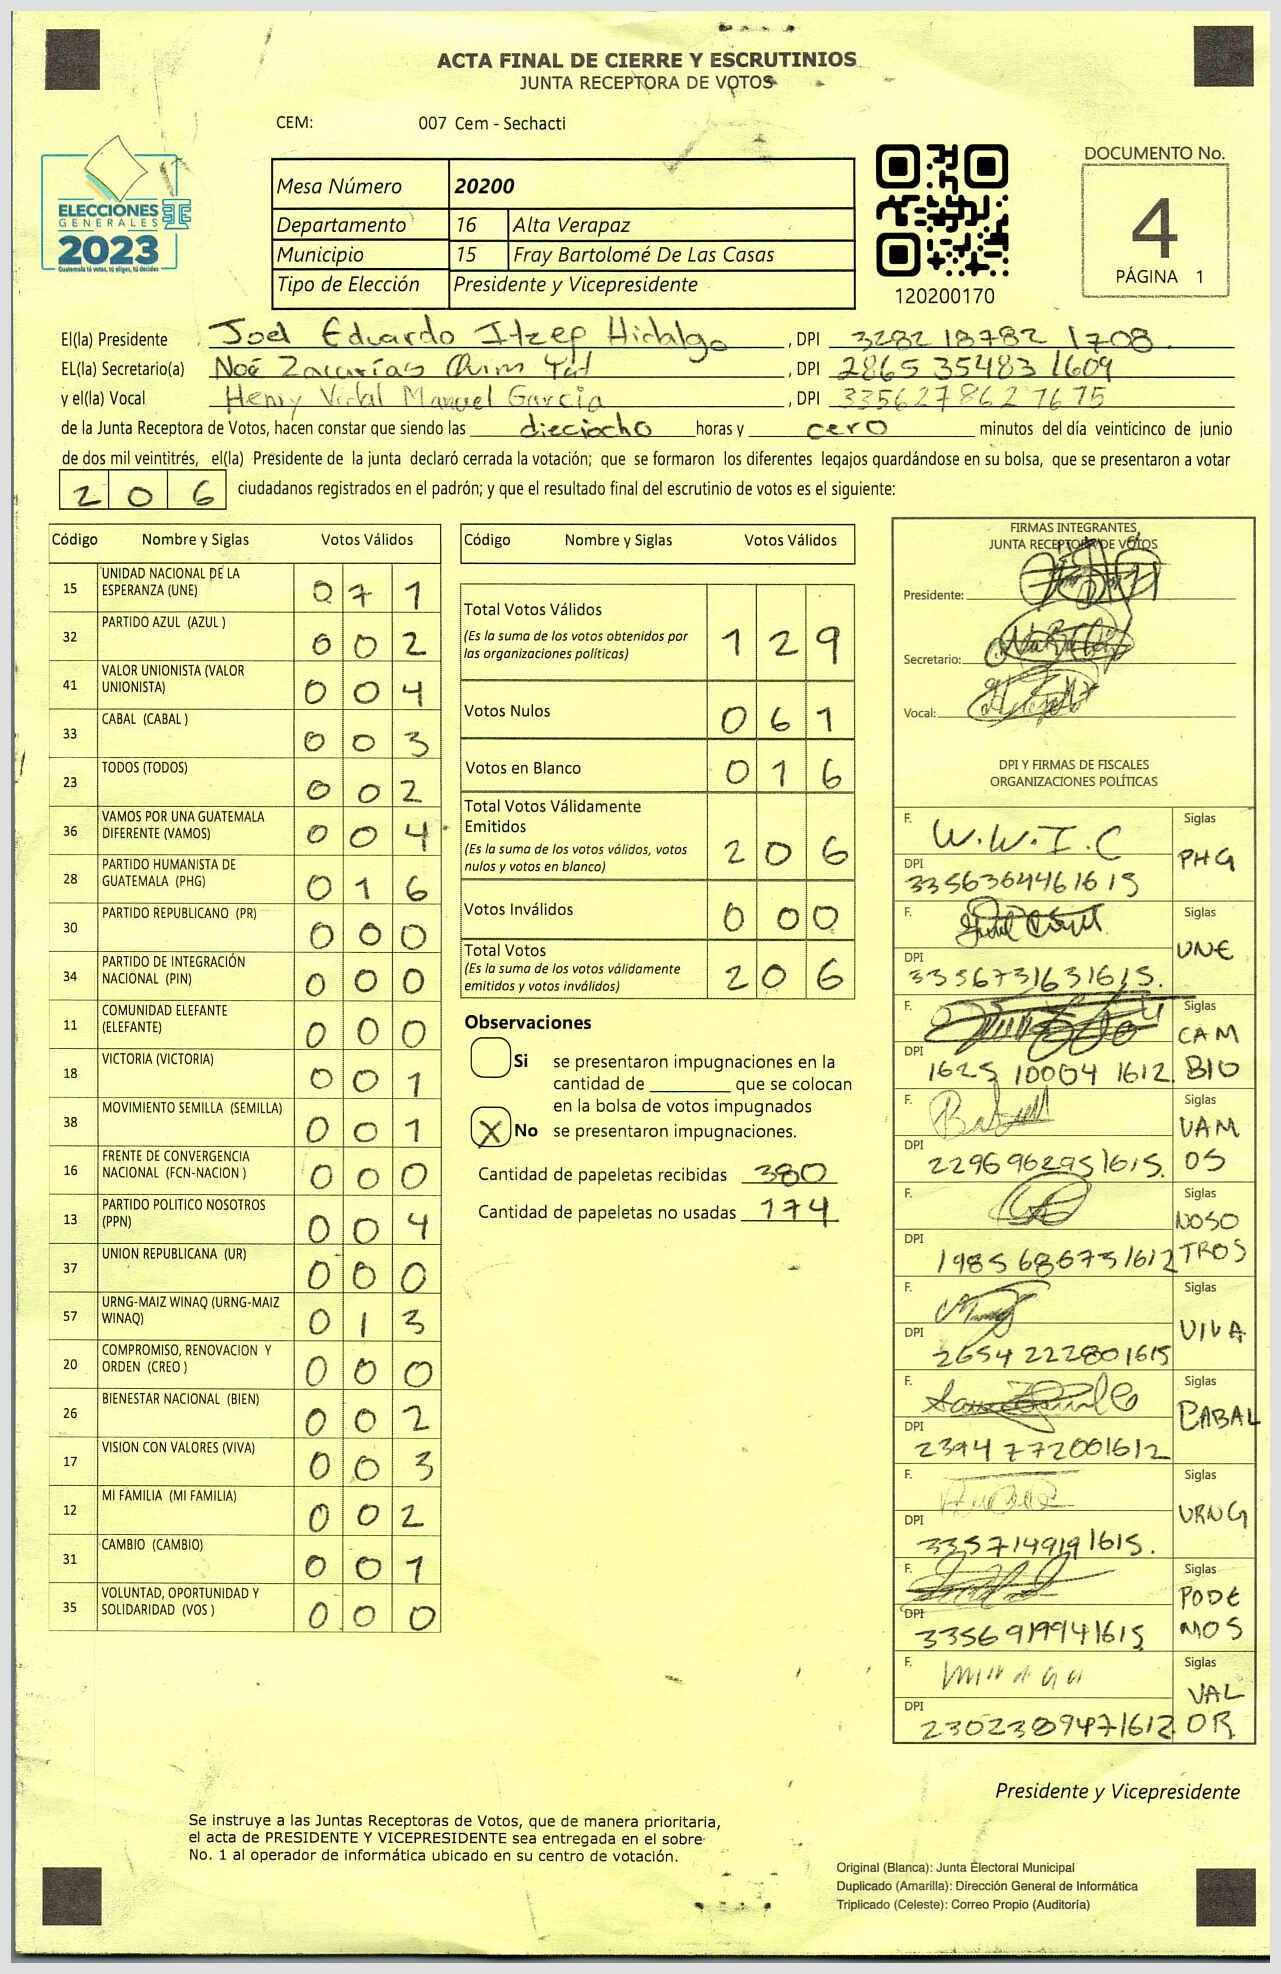 ACTA FINAL DE CIERRE Y ESCRUTINIOS
JUNTA RECEPTORA DE VOTOS
CEM: 007 Cem - Sechacti
ELECCIONES
GENERALES
2023
Guatemala tú votas, tú eliges, tú decides
Mesa Número 20200
Departamento 16 Alta Verapaz
Municipio 15 Fray Bartolomé De Las Casas
Tipo de Elección Presidente y Vicepresidente
120200170
DOCUMENTO No.
4
PÁGINA 1
El(la) Presidente Joel Eduardo Itzep Hidalgo, DPI 3282 18782 1708
EL(la) Secretario(a) Noé Zacarías Quim Tut, DPI 2865 35483 1609
y el(la) Vocal Henry Vidal Manuel García, DPI 3356278627675
de la Junta Receptora de Votos, hacen constar que siendo las dieciocho horas y cero minutos del día veinticinco de junio
de dos mil veintitrés, el(la) Presidente de la junta declaró cerrada la votación; que se formaron los diferentes legajos guardándose en su bolsa, que se presentaron a votar
206 ciudadanos registrados en el padrón; y que el resultado final del escrutinio de votos es el siguiente:
Código Nombre y Siglas Votos Válidos
15 UNIDAD NACIONAL DE LA ESPERANZA (UNE) 071
32 PARTIDO AZUL (AZUL ) 002
41 VALOR UNIONISTA (VALOR UNIONISTA) 004
33 CABAL (CABAL ) 003
23 TODOS (TODOS) 002
36 VAMOS POR UNA GUATEMALA DIFERENTE (VAMOS) 004
28 PARTIDO HUMANISTA DE GUATEMALA (PHG) 016
30 PARTIDO REPUBLICANO (PR) 000
34 PARTIDO DE INTEGRACIÓN NACIONAL (PIN) 000
11 COMUNIDAD ELEFANTE (ELEFANTE) 000
18 VICTORIA (VICTORIA) 001
38 MOVIMIENTO SEMILLA (SEMILLA) 001
16 FRENTE DE CONVERGENCIA NACIONAL (FCN-NACION ) 000
13 PARTIDO POLITICO NOSOTROS (PPN) 004
37 UNION REPUBLICANA (UR) 000
57 URNG-MAIZ WINAQ (URNG-MAIZ WINAQ) 013
20 COMPROMISO, RENOVACION Y ORDEN (CREO ) 000
26 BIENESTAR NACIONAL (BIEN) 002
17 VISION CON VALORES (VIVA) 003
12 MI FAMILIA (MI FAMILIA) 002
31 CAMBIO (CAMBIO) 001
35 VOLUNTAD, OPORTUNIDAD Y SOLIDARIDAD (VOS ) 000
Código Nombre y Siglas Votos Válidos
Total Votos Válidos 129
(Es la suma de los votos obtenidos por
las organizaciones políticas)
Votos Nulos 061
Votos en Blanco 016
Total Votos Válidamente
Emitidos 206
(Es la suma de los votos válidos, votos
nulos y votos en blanco)
Votos Inválidos 000
Total Votos 206
(Es la suma de los votos válidamente
emitidos y votos inválidos)
Observaciones
Si se presentaron impugnaciones en la
cantidad de ________ que se colocan
en la bolsa de votos impugnados
X No se presentaron impugnaciones.
Cantidad de papeletas recibidas 380
Cantidad de papeletas no usadas 174
FIRMAS INTEGRANTES
JUNTA RECEPTORA DE VOTOS
Presidente:
Secretario:
Vocal:
DPI Y FIRMAS DE FISCALES
ORGANIZACIONES POLÍTICAS
F. W.W.I.C Siglas PHG
DPI 3356364461615
F. Siglas UNE
DPI 3356731631615.
F. Siglas CAMBIO
DPI 1625 10004 1612
F. Siglas VAMOS
DPI 2296962951615
F. Siglas NOSOTROS
DPI 1985686731612
F. Siglas VIVA
DPI 2654222801615
F. Siglas CABAL
DPI 2394772001612
F. Siglas URNG
DPI 3357149191615.
F. Siglas PODEMOS
DPI 3356919941615
F. Siglas VALOR
DPI 2302389471612
Presidente y Vicepresidente
Se instruye a las Juntas Receptoras de Votos, que de manera prioritaria,
el acta de PRESIDENTE Y VICEPRESIDENTE sea entregada en el sobre
No. 1 al operador de informática ubicado en su centro de votación.
Original (Blanca): Junta Electoral Municipal
Duplicado (Amarilla): Dirección General de Informática
Triplicado (Celeste): Correo Propio (Auditoría)